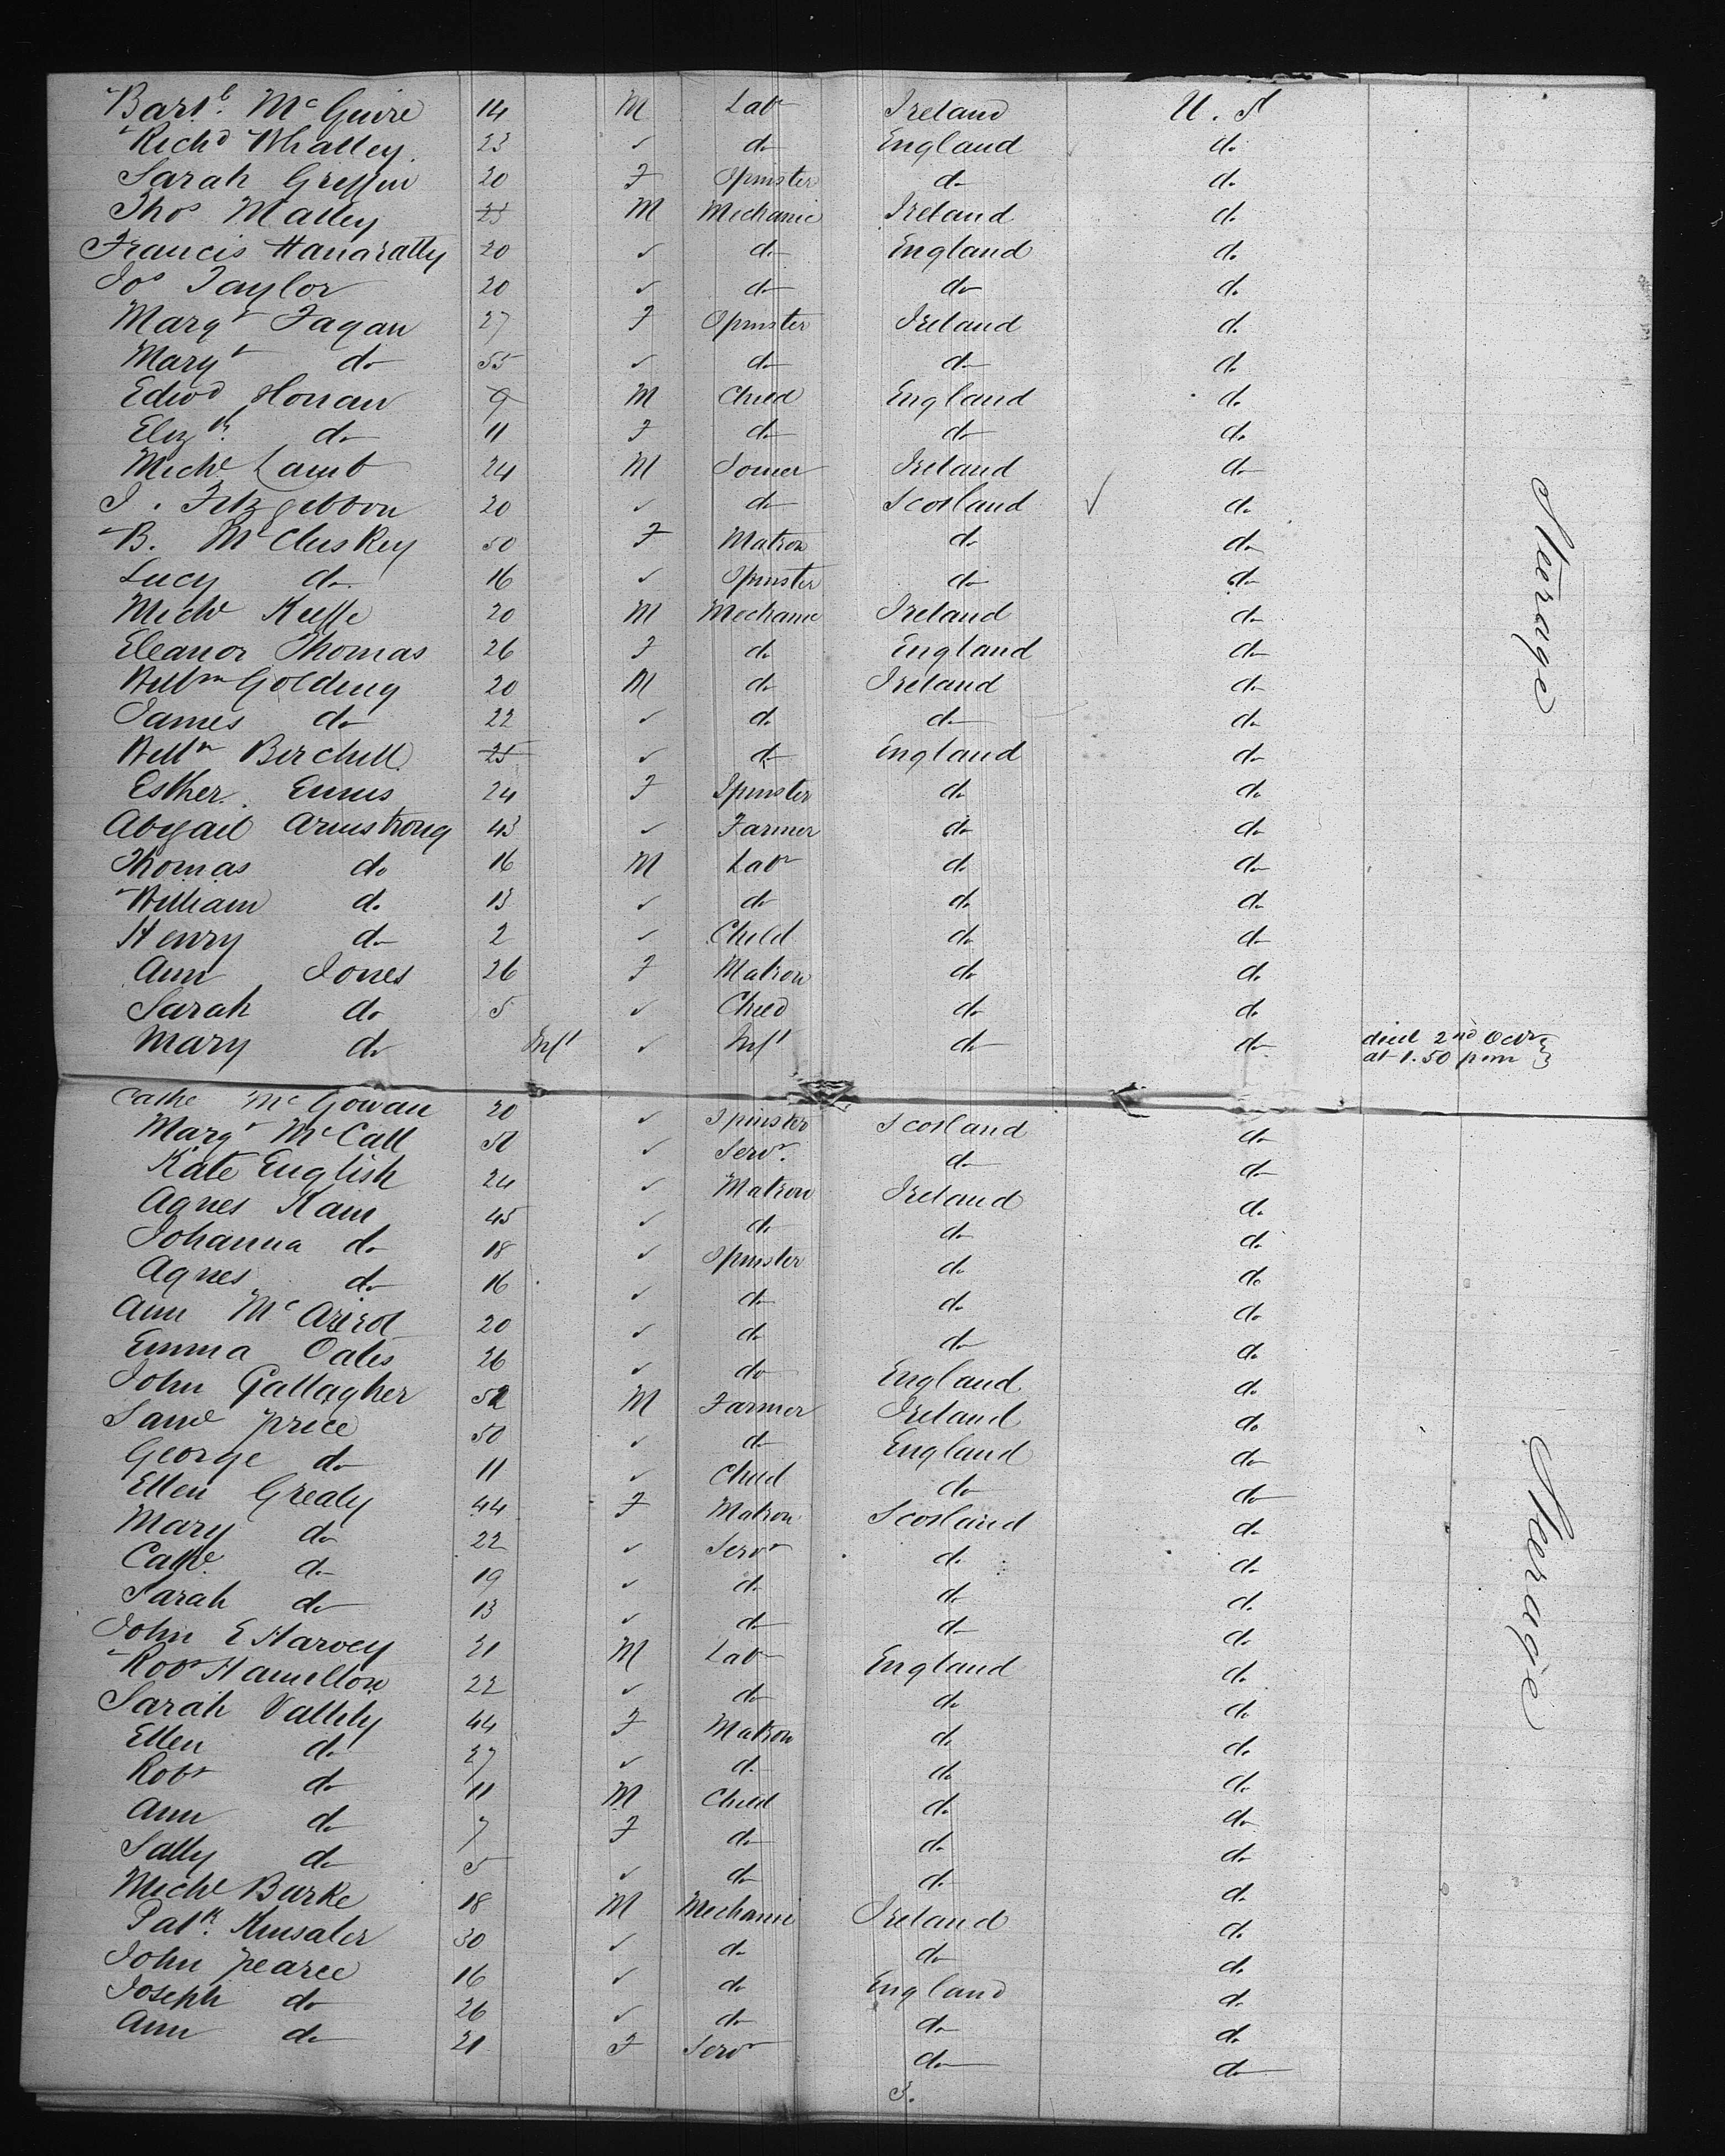 Barth. McGuire 14 M Labr Ireland U. S
Richd Whalley 23 ✓ do England do
Sarah Griffin 20 F Spinster do do
Thos Malley 25 M Mechanic Ireland do
Francis Hanaratty 20 ✓ do England do
Jos Taylor 20 ✓ do do do
Margt Fagan 27 F Spinster Ireland do
Maryt do 55 ✓ do do do
Edwd Honan 9 M Child England do
Elizth do 11 F do do do
Michl Lamb 24 M Joiner Ireland do
J. Fitzgibbon 20 ✓ do Scotland ✓ do
B. McCluskey 50 F Matron do do
Lucy do 16 ✓ Spinster do do
Michl Keeffe 20 M Mechanic Ireland do
Eleanor Thomas 26 F do England do
Willm Golding 20 M do Ireland do
James do 22 ✓ do do do
Willm Birchell 25 ✓ do England do
Esther Ennis 24 F Spinster do do
Abigail Armstrong 43 ✓ Farmer do do
Thomas do 16 M Labr do do
William do 13 ✓ do do do
Henry do 2 ✓ Child do do
Ann Jones 26 F Matron do do
Sarah do 5 ✓ Child do do
Mary do Inft ✓ Inft do do died 2nd Octr at 1.50 pm
Steerage
Cathe McGowan 20 ✓ Spinster Scotland do
Margt McCall 50 ✓ Servt. do do
Kate English 24 ✓ Matron Ireland do
Agnes Kain 45 ✓ do do do
Johanna do 18 ✓ Spinster do do
Agnes do 16 ✓ do do do
Ann Mc 20 ✓ do do do
Emma Oates 26 ✓ do England do
John Gallagher 52 M Farmer Ireland do
Saml Price 50 ✓ do England do
George do 11 ✓ Child do do
Ellen Grealy 44 F Matron Scotland do
Mary do 22 ✓ Servt do do
Cathe do 19 ✓ do do do
Sarah do 13 ✓ do do do
John E Harvey 21 M Labr England do
Robt Hamilton 22 ✓ do do do
Sarah Vallely 44 F Matron do do
Ellen do 27 ✓ do do do
Robt do 11 M Child do do
Ann do 7 F do do do
Sally do 5 ✓ do do do
Michl Burke 18 M Mechanic Ireland do
Patk. Kinsaler 30 ✓ do do do
John Pearce 16 ✓ do England do
Joseph do 26 ✓ do do do
Ann do 21 F Servt do do
3.
Steerage